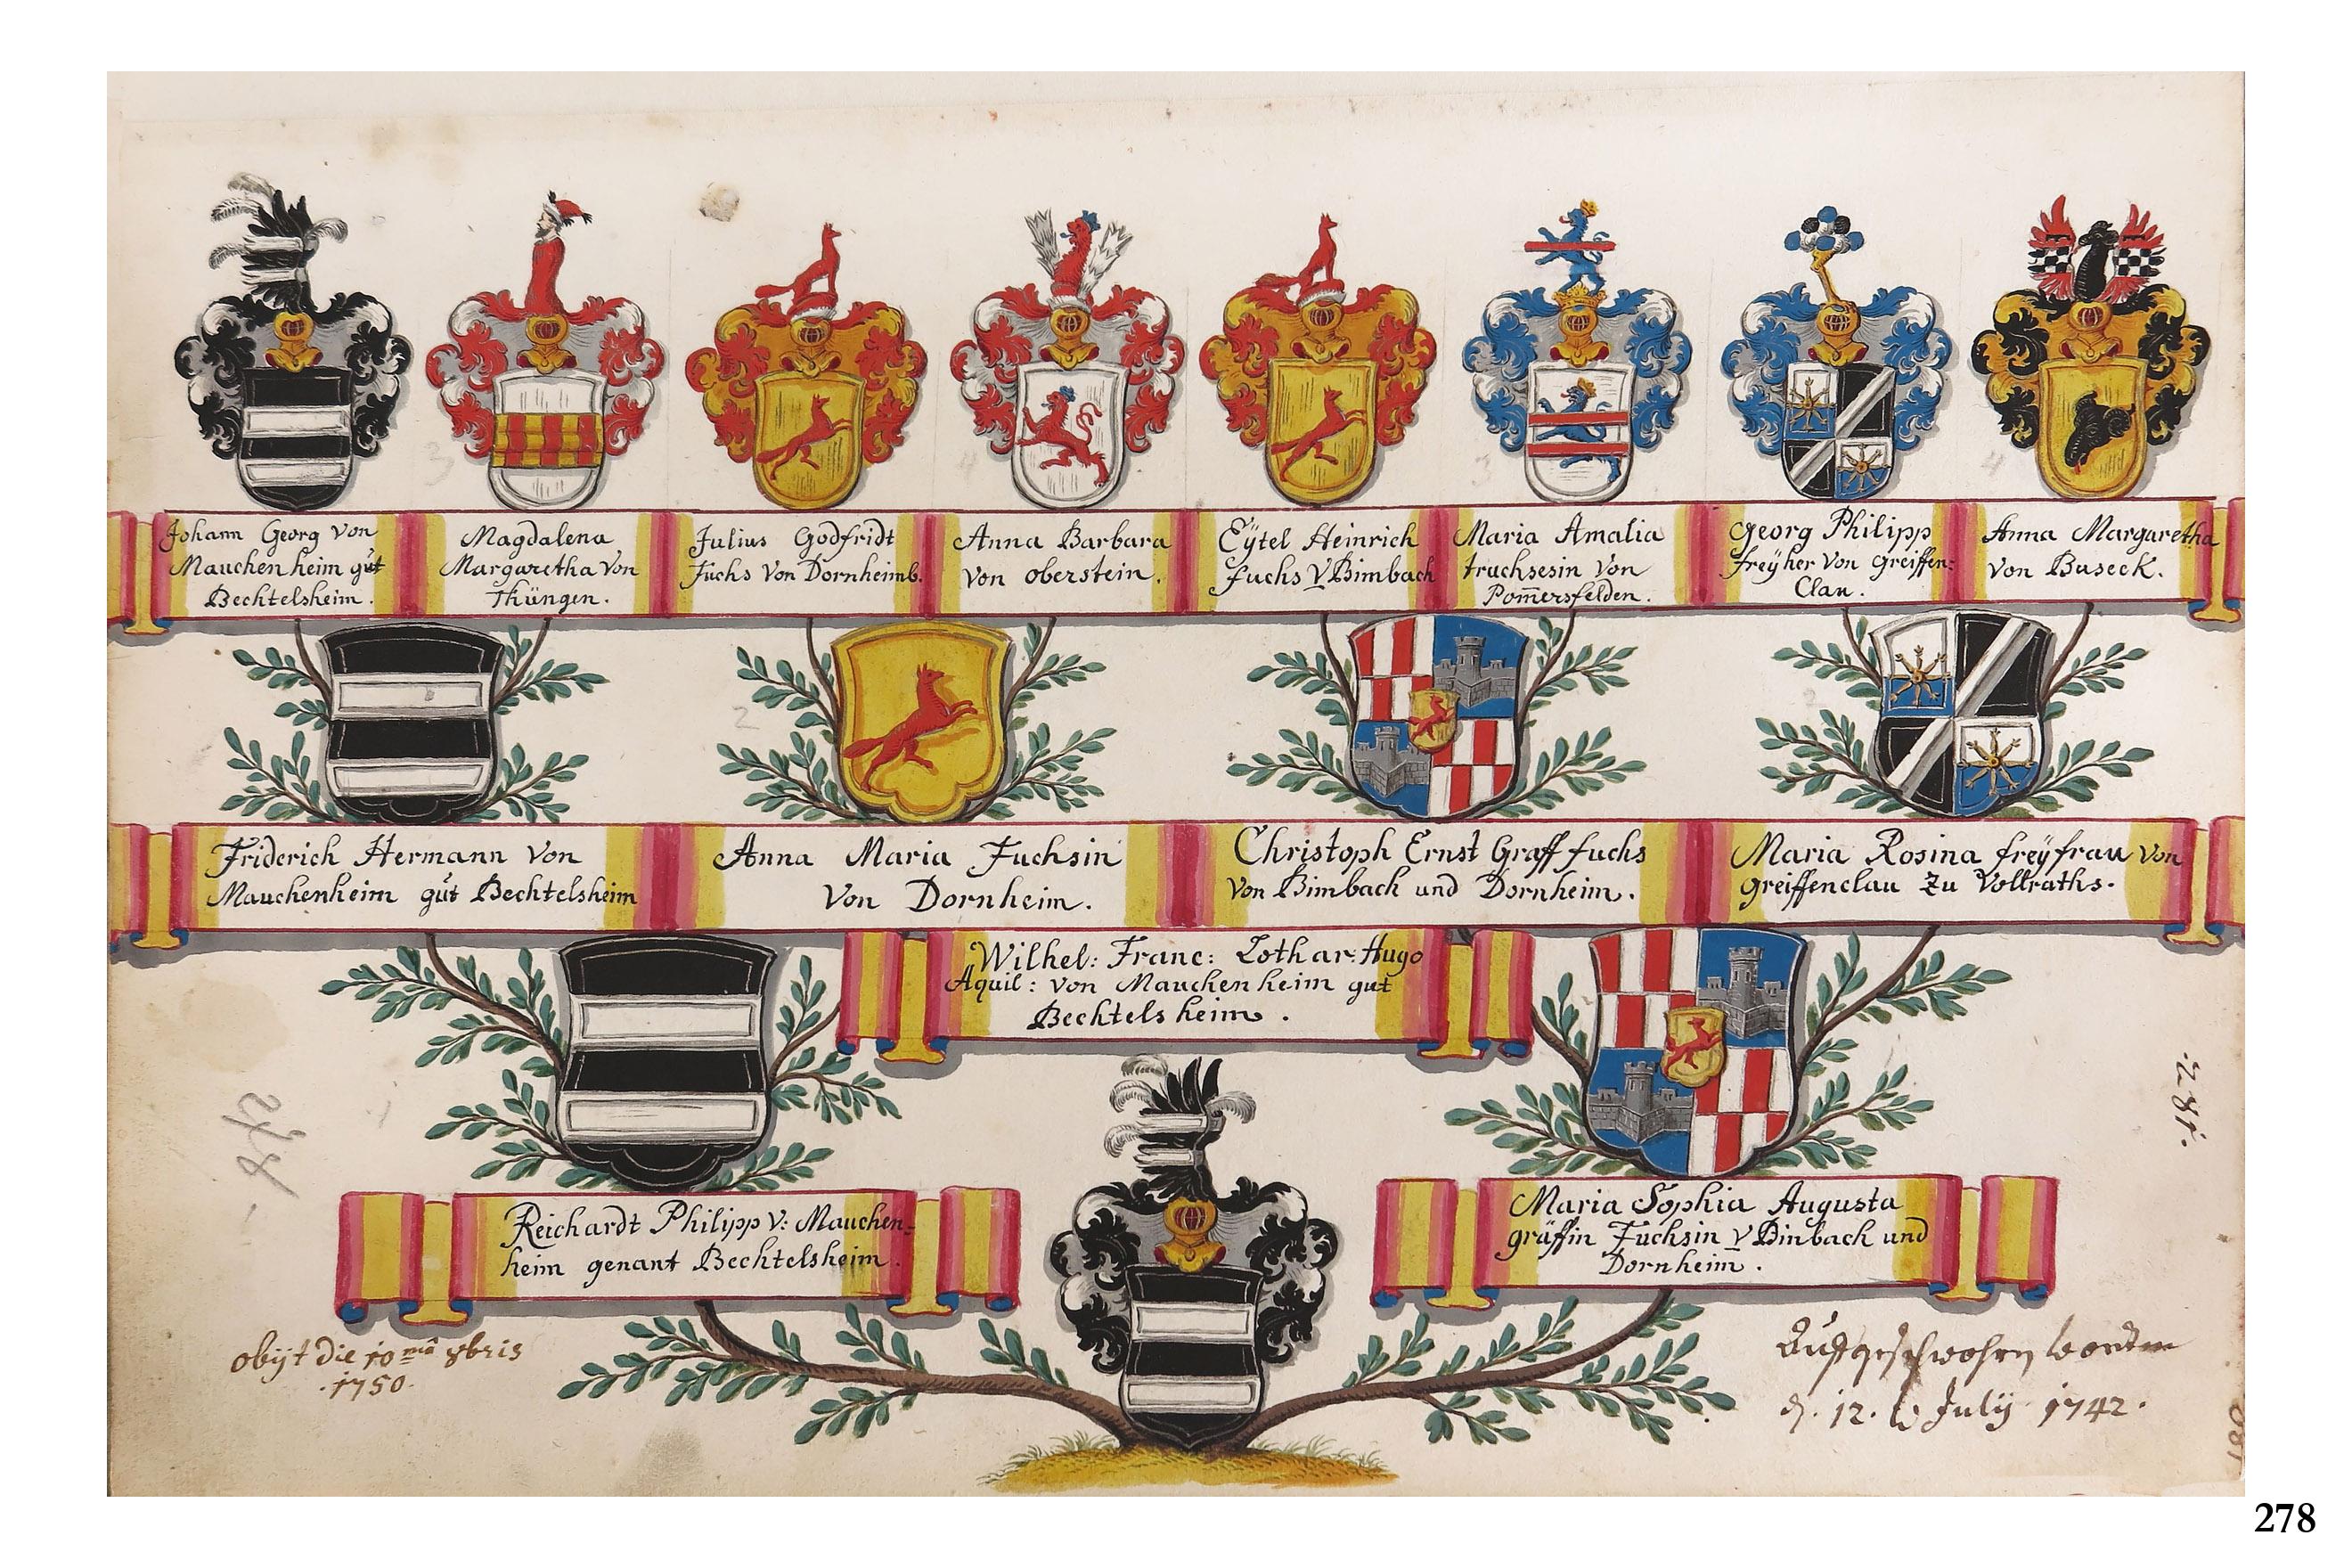 Johann Georg von
Mauchenheim gūt
Bechtelsheim.
Magdalena
Margaretha von
Thüngen.
Julius Godfridt
Fuchs von Dornheimb.
Anna Barbara
von oberstein.
Eÿtel Heinrich
fuchs V Bimbach
Maria Amalia
truchsesin von
Pom̄ersfelden.
Georg Philipp
freÿher von Greiffen:
Clau.
Anna Margaretha
von Buseck.
Friderich Hermann von
Mauchenheim gūt Bechtelsheim
Anna Maria Fuchsin
von Dornheim.
Christoph Ernst Graff fuchs
von Bimbach und Dornheim.
Maria Rosina freÿfrau von
greiffenclau zu Vollraths.
Wilhel: Franc: Lothar: Hugo
Aquil: von Mauchenheim gut
Bechtelsheim.
Reichardt Philipp V: Mauchen-
heim genant Bechtelsheim.
Maria Sophia Augusta
gräffin Fuchsin V Binbach und
Dornheim.
obijt die 10 mâ 8bris
·1750·
Aufgeschwohrn worden
d. 12. July 1742.
·281·
278